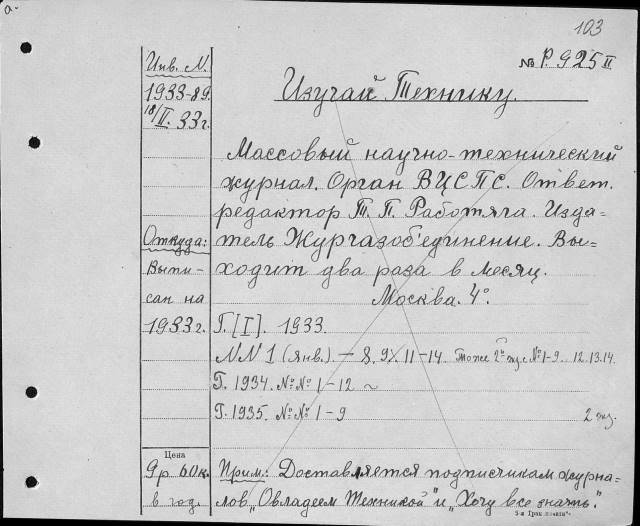 а.
103
№ Р.925 II
Инв. N.
1933-89.
18/II. 33 г.
Изучай Технику.
Массовый научно-технический
журнал. Орган ВЦСПС. Ответ.
редактор Т. П. Работяга. Изда-
Откуда:
тель Жургазоб'единение. Вы-
Выпи-
ходит два раза в месяц.
сан на
Москва. 4°.
1933 г.
Г. [I]. 1933.
NN 1 (янв.) – 8. 9/ 11-14. То же 2й экз. №1-9. 12.13.14.
Г. 1934. №№ 1-12
Г. 1935. №№ 1-9
2 экз.
Цена
9 р 60 к.
в год.
Прим.: Доставляется подписчикам журна-
лов „Овладеем Техникой" и „Хочу все знать".